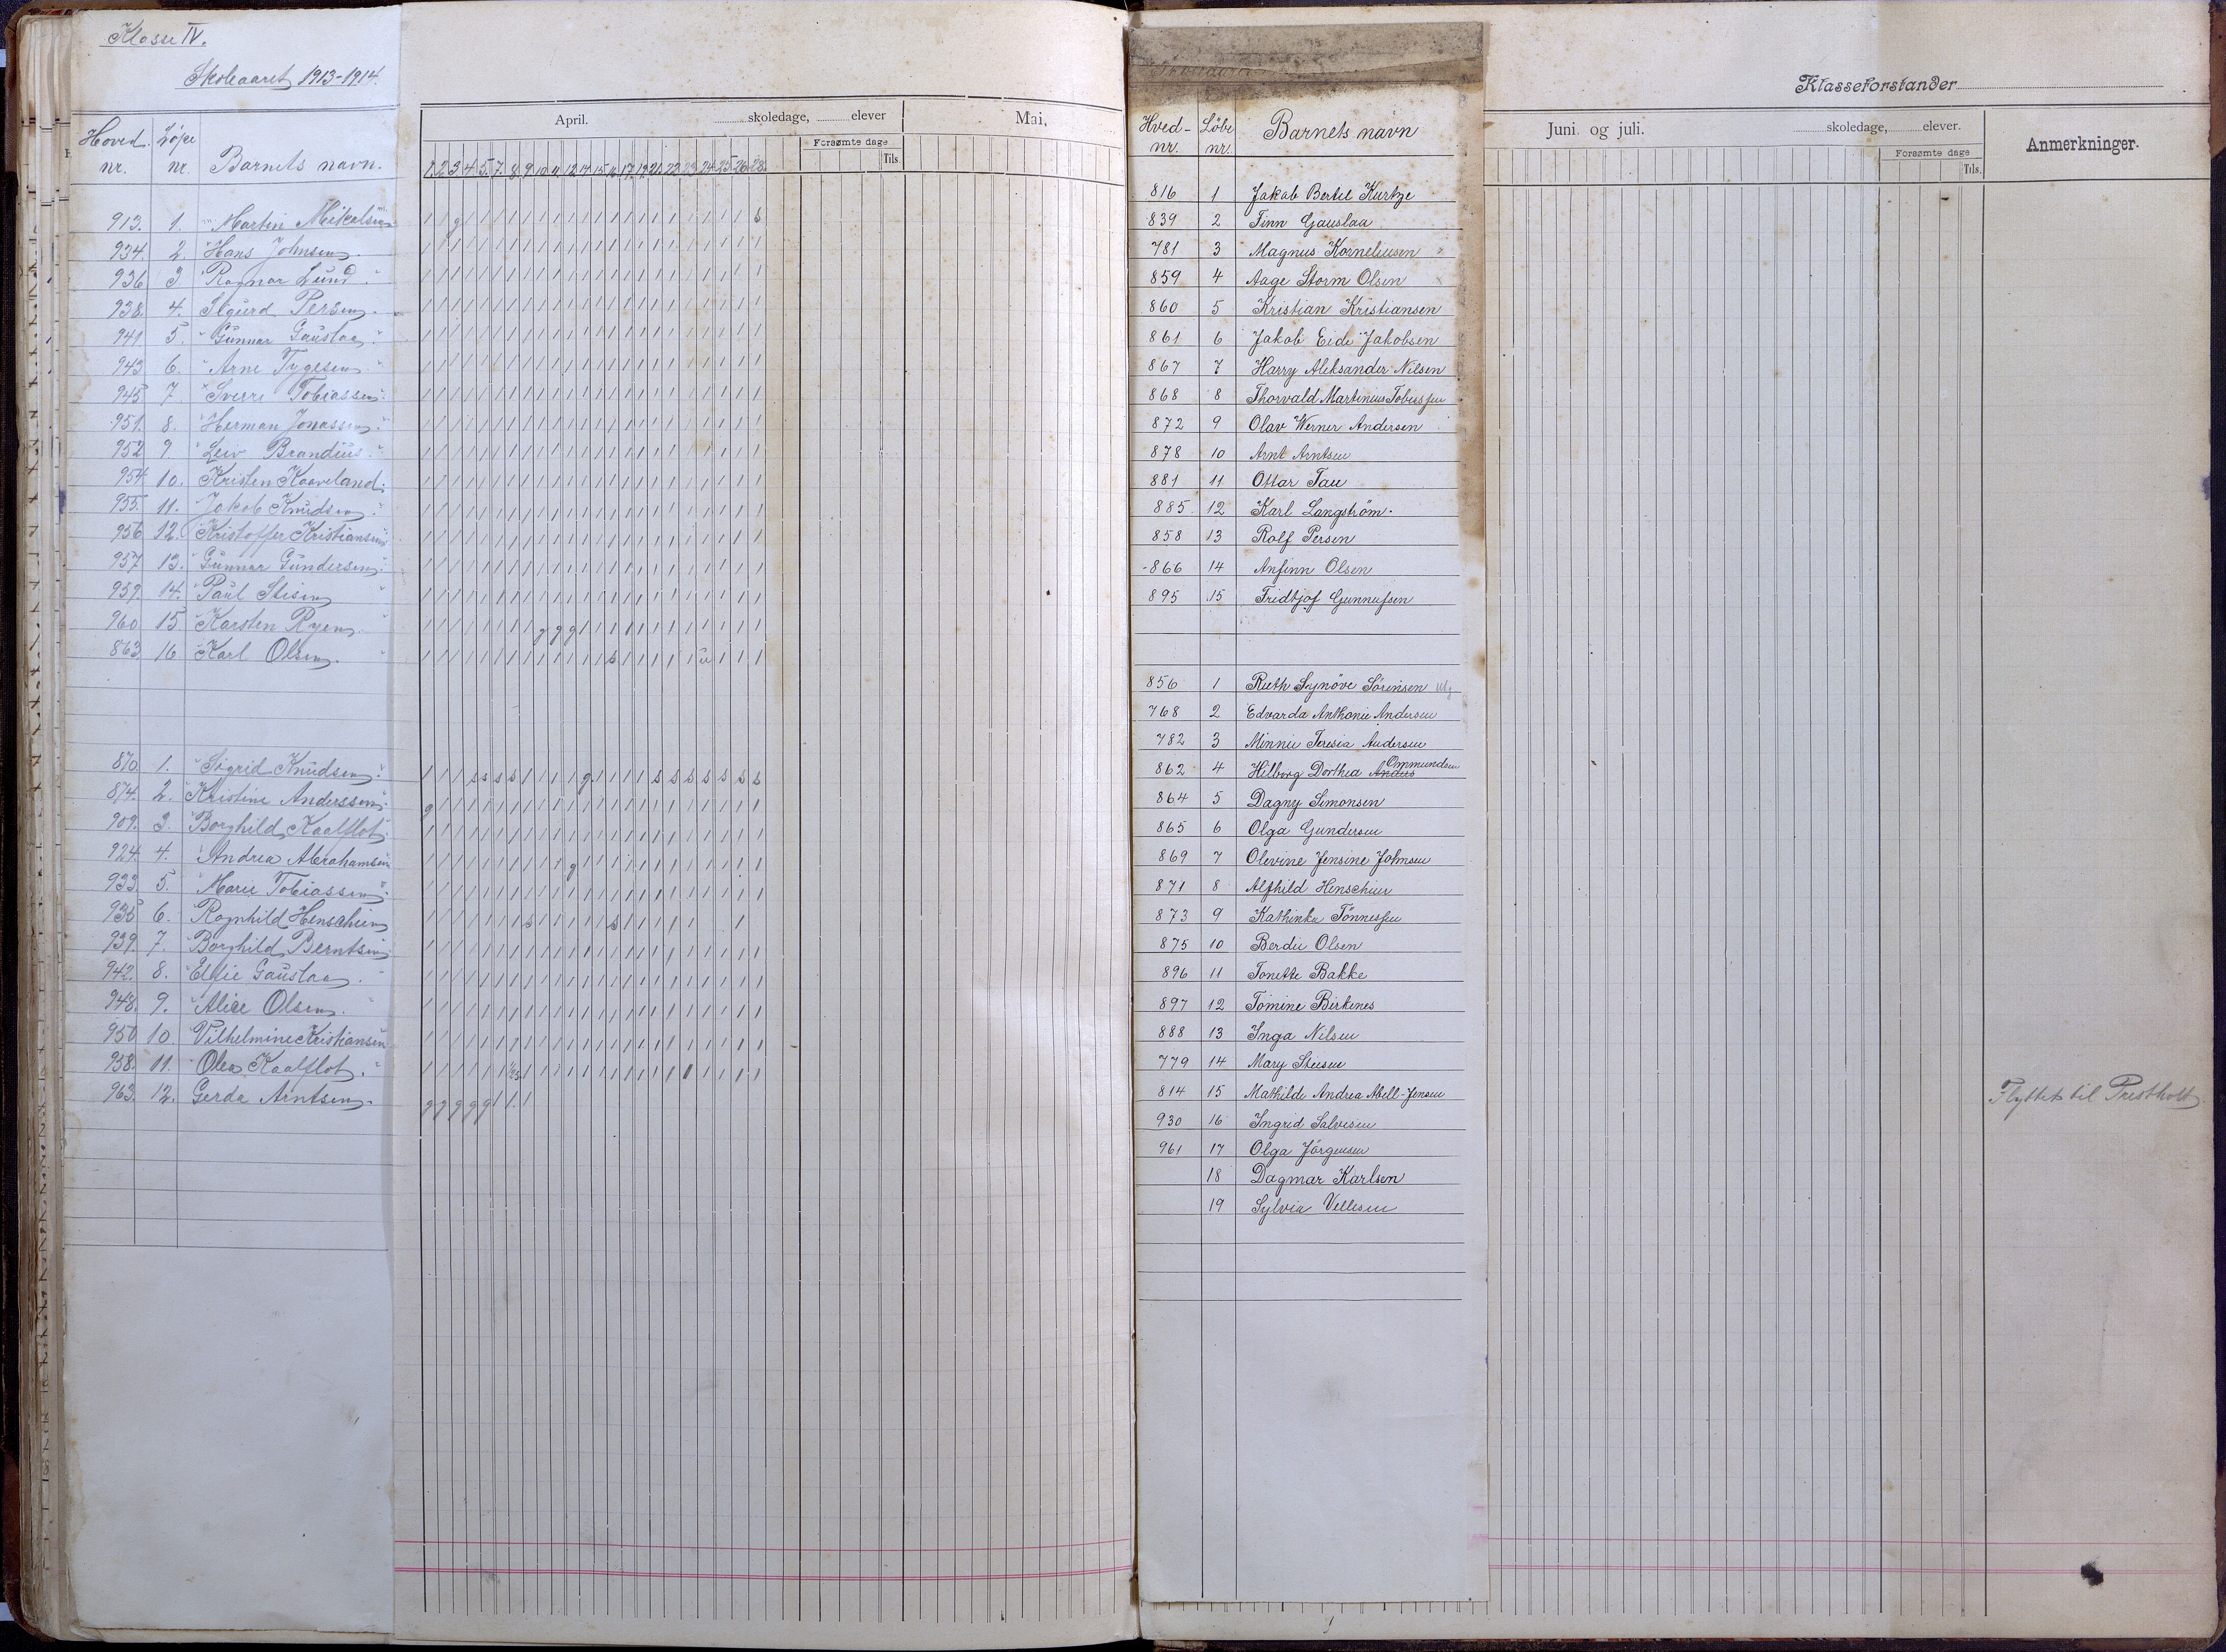 Klasse IV.
Skoleaaret 1913-1914.
Hoved nr. Løpe nr. Barnets navn.
913. 1. Martin Mikalsen
934. 2. Hans Johnsen
936 3 Ragnar Lund
938. 4. Sigurd Persen
941 5. Gunnar Gauslaa
943 6. Arne Tygesen
945 7. Sverre Tobiassen
951. 8. Herman Jonassen
952 9. Leiv Brandeus
954 10. Kristen Kaaveland
955. 11. Jakob Knudsen
956 12. Kristoffer Kristiansen
957 13. Gunnar Gundersen
959. 14. Paul Stisen
960 15 Karsten Ryen
863 16 Karl Olsen
870. 1. Sigrid Knudsen
874. 2. Kristine Anderssen
909. 3. Borghild Kaalflot
924. 4. Andrea Abrahamsen
933 5. Marie Tobiassen
935 6. Ragnhild Henschien
939. 7. Borghild Berntsen
942. 8. Ellie Gauslaa
948. 9. Alice Olsen
950 10. Vilhelmine Kristiansen
958. 11. Olea Kaalflot
963. 12. Gerda Arntsen
April. skoledage, elever
Forsømte dage
Tils.
1. 2 3 4 5. 7. 8. 9. 10 11 12 14 15 16 17 19 21 22 23 24 25 26 28.
Mai,
Hved-nr. Løbe nr. Barnets navn
816 1 Jakob Bertel Kurtze
839 2 Finn Gauslaa
781 3 Magnus Korneliusen
859 4 Aage Storm Olsen
860 5 Kristian Kristiansen
861 6 Jakob Eide Jakobsen
867 7 Harry Aleksander Nilsen
868 8 Thorvald Martinius Tobiassen
872 9 Olav Werner Andersen
878 10 Arnt Arntsen
881 11 Ottar Tau
885 12 Karl Langström.
858 13 Rolf Persen
866 14 Anfinn Olsen
895 15 Fridtjof Gunnufsen
856 1 Ruth Synöve Sörensen
768 2 Edvarda Anthonie Andersen
782 3 Minnie Teresia Andersen
862 4 Hilborg Dorthea Andres Ommundsen
864 5 Dagny Simonsen
865 6 Olga Gundersen
869 7 Olevine Jensine Johnsen
871 8 Alfhild Henschien
873 9 Kathinka Tönnessen
875 10 Berdie Olsen
896 11 Tonette Bakke
897 12 Tomine Birkenes
888 13 Inga Nilsen
779 14 Mary Stiesen
814 15 Mathilde Andrea Abell-Jensen
930 16 Ingrid Salvesen
961 17 Olga Jörgensen
18 Dagmar Karlsen
19 Sylvia Vellesen
Klasseforstander
Juni og juli. skoledage, elever.
Forsømte dage
Tils.
Anmerkninger.
Flyttet til Prestholt